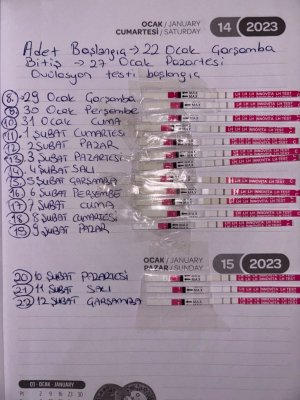 OCAK / JANUARY
CUMARTESİ / SATURDAY
14 2023
Adet Başlangıç → 22 Ocak Çarşamba
Bitiş → 27 Ocak Pazartesi
Ovülasyon testi başlangıç
8. → 29 Ocak Çarşamba
9) 30 Ocak Perşembe
10) 31 Ocak CUMA
11) 1 ŞUBAT CUMARTESİ
12) 2 ŞUBAT PAZAR
13) 3 ŞUBAT PAZARTESİ
14) 4 ŞUBAT SALI
15) 5 ŞUBAT ÇARŞAMBA
16) 6 ŞUBAT PERŞEMBE
17) 7 ŞUBAT CUMA
18) 8 ŞUBAT CUMARTESİ
19) 9 ŞUBAT PAZAR
OCAK / JANUARY
PAZAR / SUNDAY
15 2023
20) 10 ŞUBAT PAZARTESİ
21) 11 ŞUBAT SALI
22) 12 ŞUBAT ÇARŞAMBA
01 - OCAK - JANUARY
Pt 2 9 16 23 30